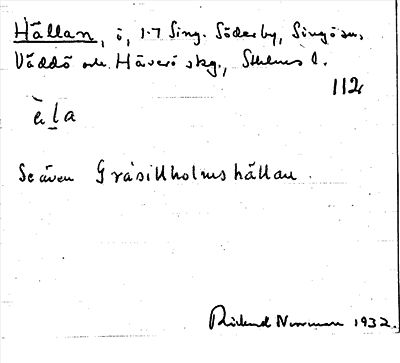 Hällan, ö, 1⋅7 Sing. Söderby, Singö sn,
Väddö och Häverö skg., Sthlms l.
112
èḷa
Se även Gråsillholmshällan.
Rickard Norrman 1932.